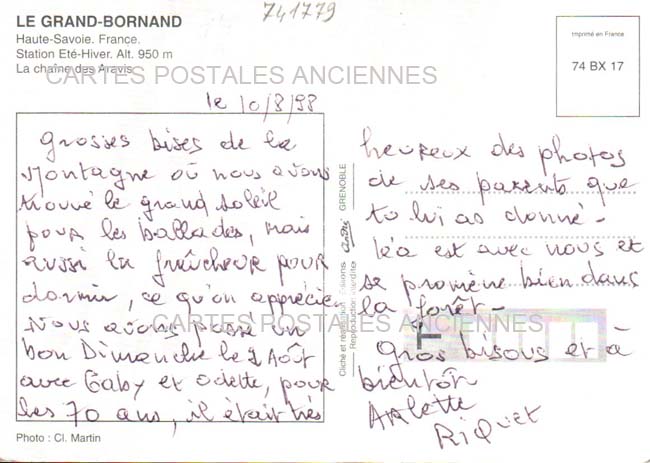 741779
LE GRAND-BORNAND
Haute-Savoie. France.
Station Eté-Hiver. Alt. 950 m
La chaîne des Aravis
Imprimé en France
74 BX 17
CARTES POSTALES ANCIENNES
le 10/8/98
Grosses bises de la
Montagne où nous avons
trouvé le grand soleil
pour les ballades, mais
aussi la fraîcheur pour
dormir, ce qu'on apprécie.
Nous avons passé un
bon Dimanche le 2 Août
avec Gaby et Odette, pour
les 70 ans, il était très
heureux des photos
de ses parents que
tu lui as donné -
Léa est avec nous et
se promène bien dans
la forêt -
Gros bisous et à
bientôt
Arlette
RIQuet
CARTES POSTALES ANCIENNES
Cliché et réalisation Editions André GRENOBLE
Reproduction interdite
F
Photo : Cl. Martin